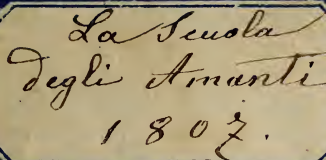 La Scuola
degli Amanti
1807.